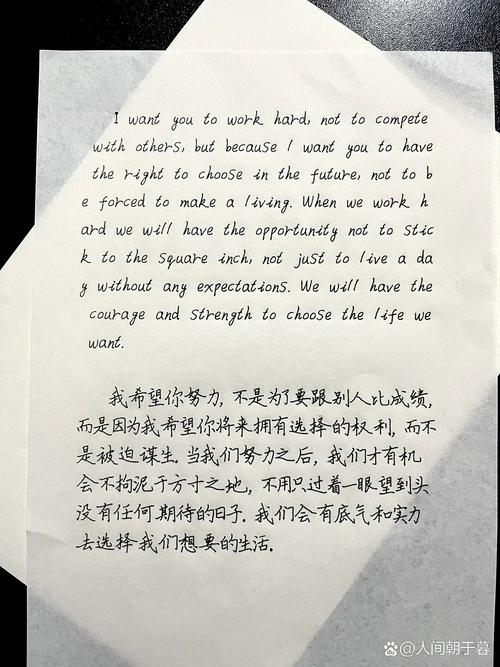 I want you to work hard, not to compete
with others, but because I want you to have
the right to choose in the future, not to b
e forced to make a living. When we work h
ard we will have the opportunity not to stic
k to the square inch, not just to live a da
y without any expectations. We will have the
courage and strength to choose the life we
want.
我希望你努力, 不是为了要跟别人比成绩,
而是因为我希望你将来拥有选择的权利, 而不
是被迫谋生. 当我们努力之后, 我们才有机
会不拘泥于方寸之地, 不用只过着一眼望到头
没有任何期待的日子. 我们会有底气和实力
去选择我们想要的生活.
@人间朝于暮